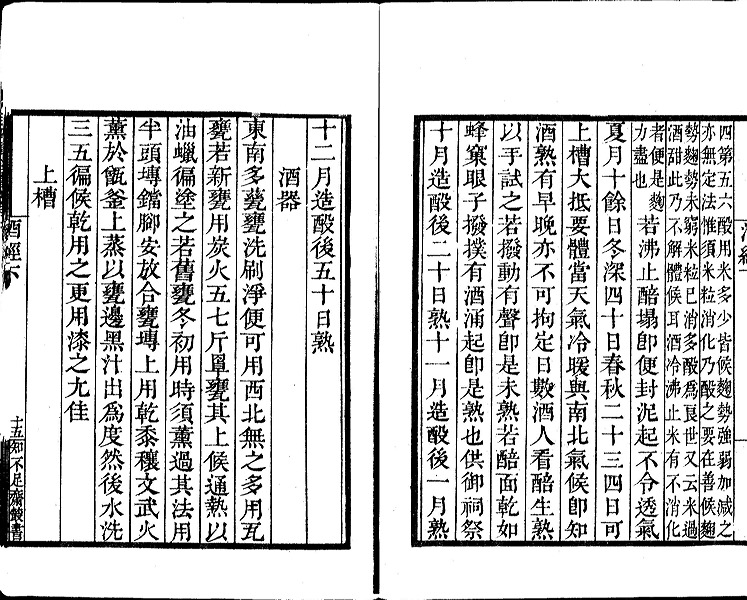 四第五六酘用米多少皆候麴勢強弱加減之
亦無定法惟須米粒消化乃酘之要在善候麴
勢麴勢未窮米粒已消多酘為良世又云米過
酒甜此乃不解體候耳酒冷沸止米有不消化
者便是麴
力盡也
若沸止醅塌即便封泥起不令透氣
夏月十餘日冬深四十日春秋二十三四日可
上槽大抵要體當天氣冷暖與南北氣候即知
酒熟有早晚亦不可拘定日數酒人看醅生熟
以手試之若撥動有聲即是未熟若醅面乾如
蜂窠眼子撥撲有酒涌起即是熟也供御祠祭
十月造酘後二十日熟十一月造酘後一月熟
十二月造酘後五十日熟
酒器
東南多甆甕洗刷淨便可用西北無之多用瓦
甕若新甕用炭火五七斤罩甕其上候通熱以
油蠟徧塗之若舊甕冬初用時須薰過其法用
半頭塼鐺腳安放合甕塼上用乾黍穰文武火
薰於甑釜上蒸以甕邊黑汁出為度然後水洗
三五徧候乾用之更用漆之尤佳
上槽
酒經下
十五知不足齋叢書